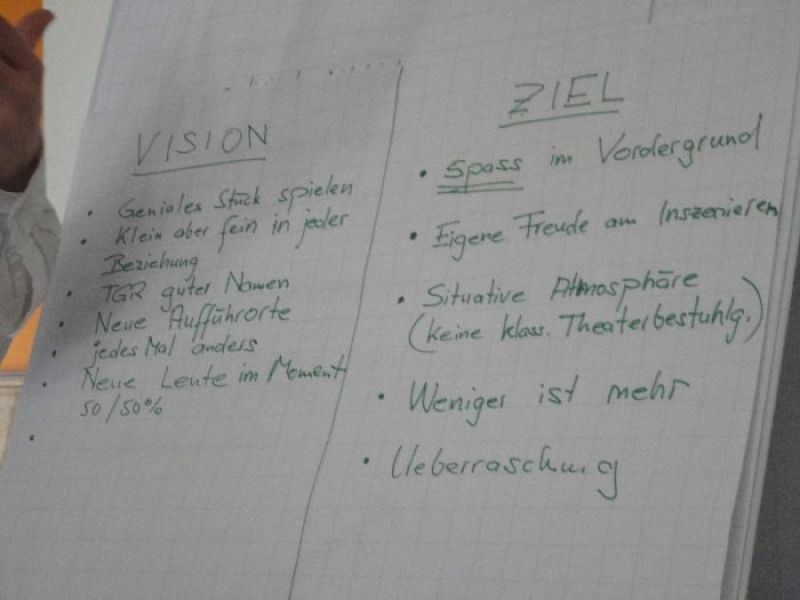 VISION
• Geniales Stück spielen
• Klein aber fein in jeder
Beziehung
• TGR guter Namen
• Neue Aufführorte
• jedes Mal anders
• Neue Leute im Moment
50/50%
•
ZIEL
• Spass im Vordergrund
• Eigene Freude am Inszenieren
• Situative Atmosphäre
(keine klass. Theaterbestuhlg.)
• Weniger ist mehr
• Ueberraschung